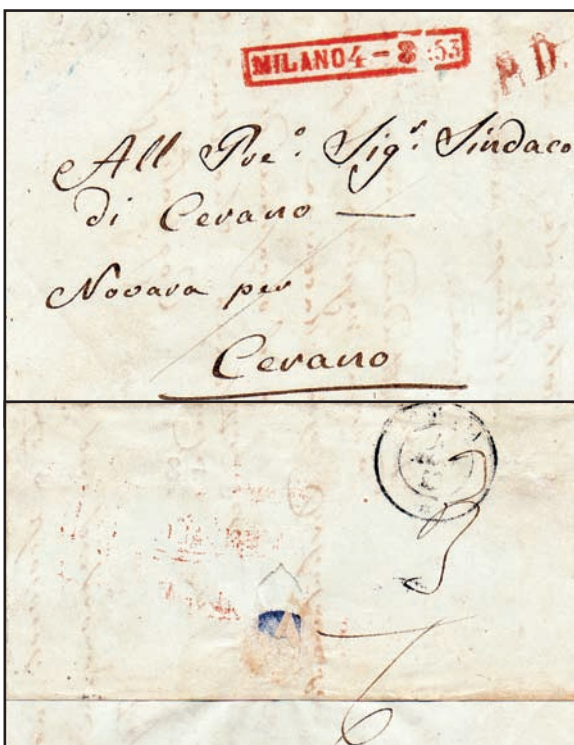 MILANO 4 - 8 53
P.D.
All Pre.º Sigr. Sindaco
di Cerano
Novara per
Cerano